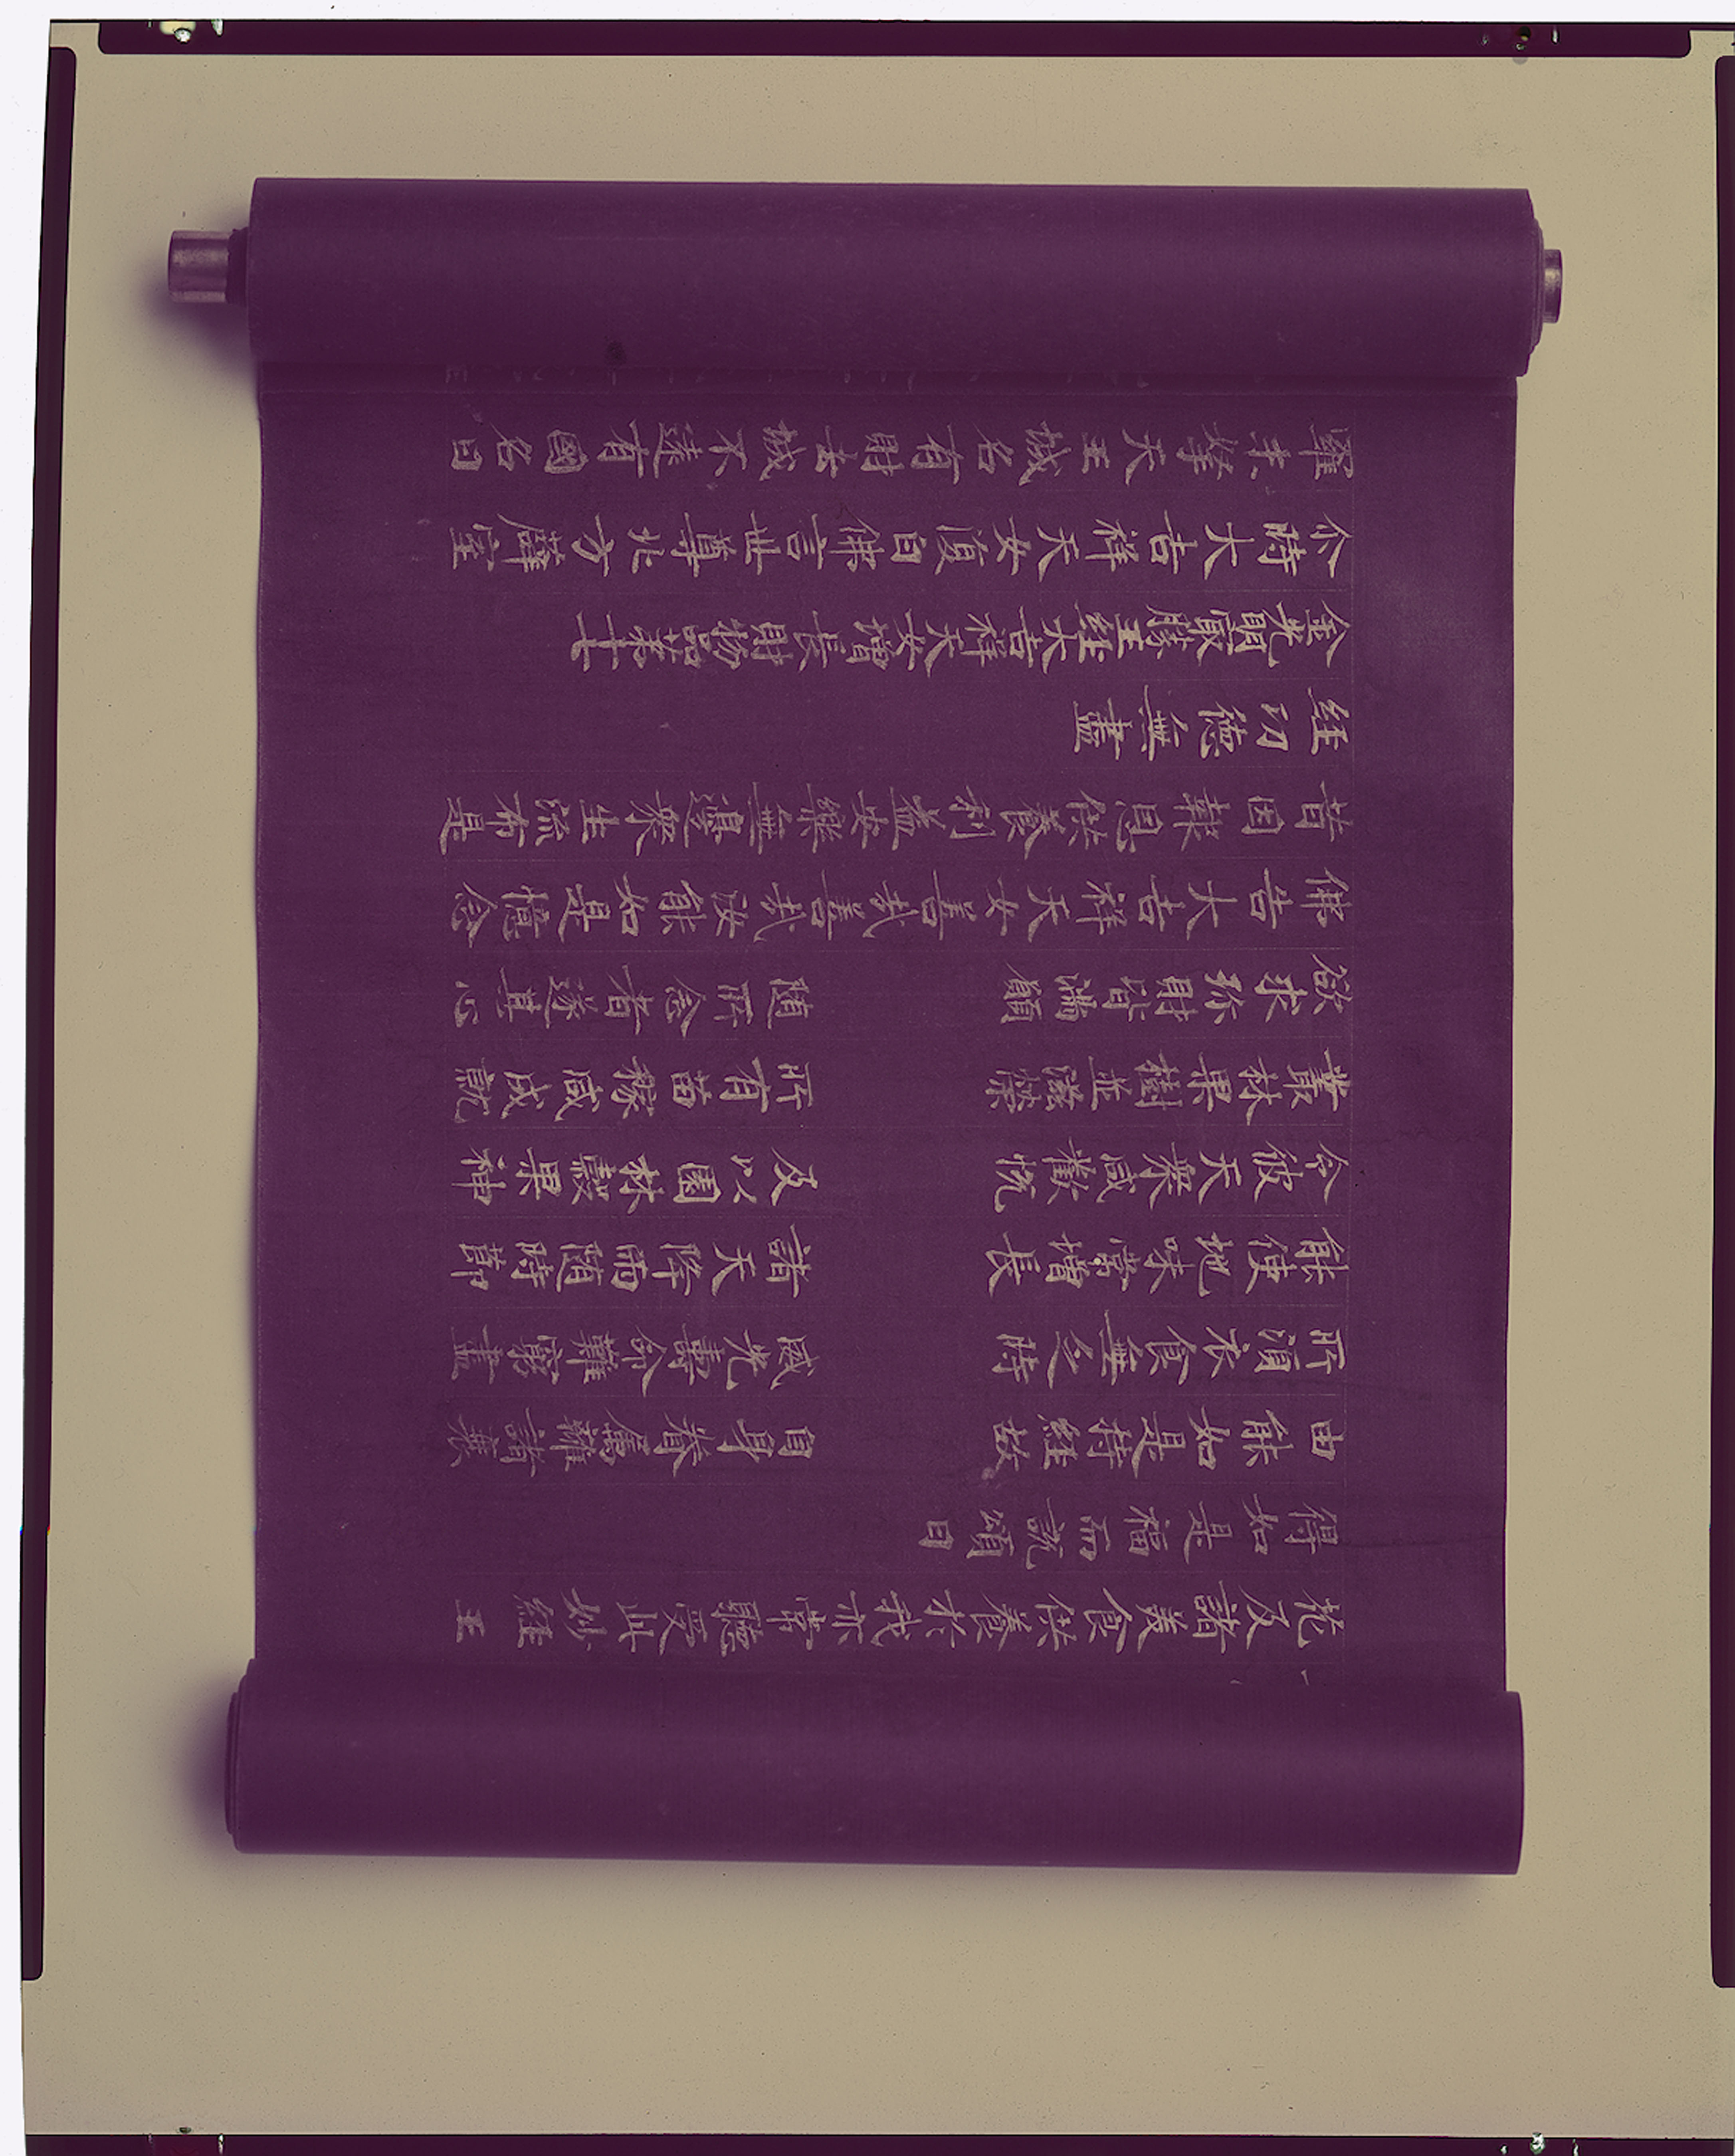 花及諸美食供養於我亦常聽受此妙經王
得如是福而說頌曰
由能如是持經故　自身眷屬離諸衰
所須衣食無乏時　威光壽命難窮盡
能使地味常增長　諸天降雨隨時節
令彼天眾咸歡悅　及以園林穀果神
叢林果樹並滋榮　所有苗稼咸成就
欲求珍財皆滿願　隨所念者遂其心
佛告大吉祥天女善哉善哉汝能如是憶念
昔因報恩供養利益安樂無邊眾生流布是
經功德無盡
金光明最勝王經大吉祥天女增長財物品第十七
尒時大吉祥天女復白佛言世尊北方薜室
羅末拏天王城名有財去城不遠有園名曰